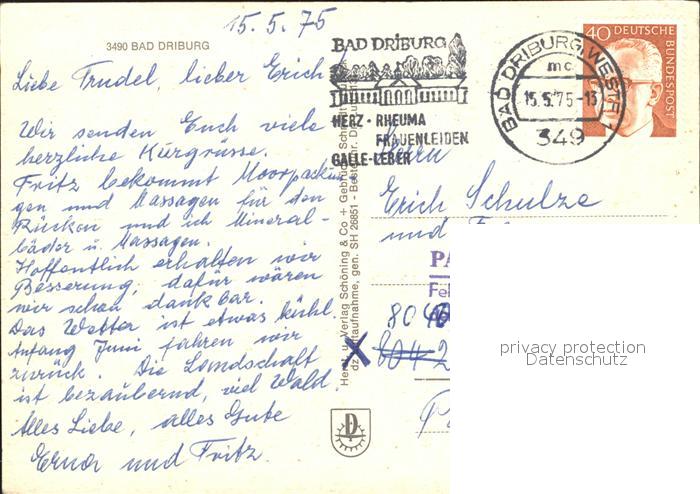 15. 5. 75
3490 BAD DRIBURG
Liebe Trudel, lieber Erich
Wir senden Euch viele
herzliche Kurgrüsse.
Fritz bekommt Moorpackun-
gen und Massagen für den
Rücken und ich Mineral-
bäder u. Massagen.
Hoffentlich erhalten wir
Besserung, dafür wären
wir schon dankbar.
Das Wetter ist etwas kühl.
Anfang Juni fahren wir
zurück. Die Landschaft
ist bezaubernd, viel Wald.
Alles Liebe, alles Gute
Erna und Fritz.
BAD DRIBURG
HERZ · RHEUMA
FRAUENLEIDEN
GALLE-LEBER
BAD DRIBURG, WESTF 1
mc
15.5.75-13
349
40 DEUTSCHE
BUNDESPOST
Verlag Schöning & Co + Gebrüder Schmidt
gen. SH 26851 - Bestell-Nr.
Herrn
Erich Schulze
und
PA
804
D
privacy protection
Datenschutz